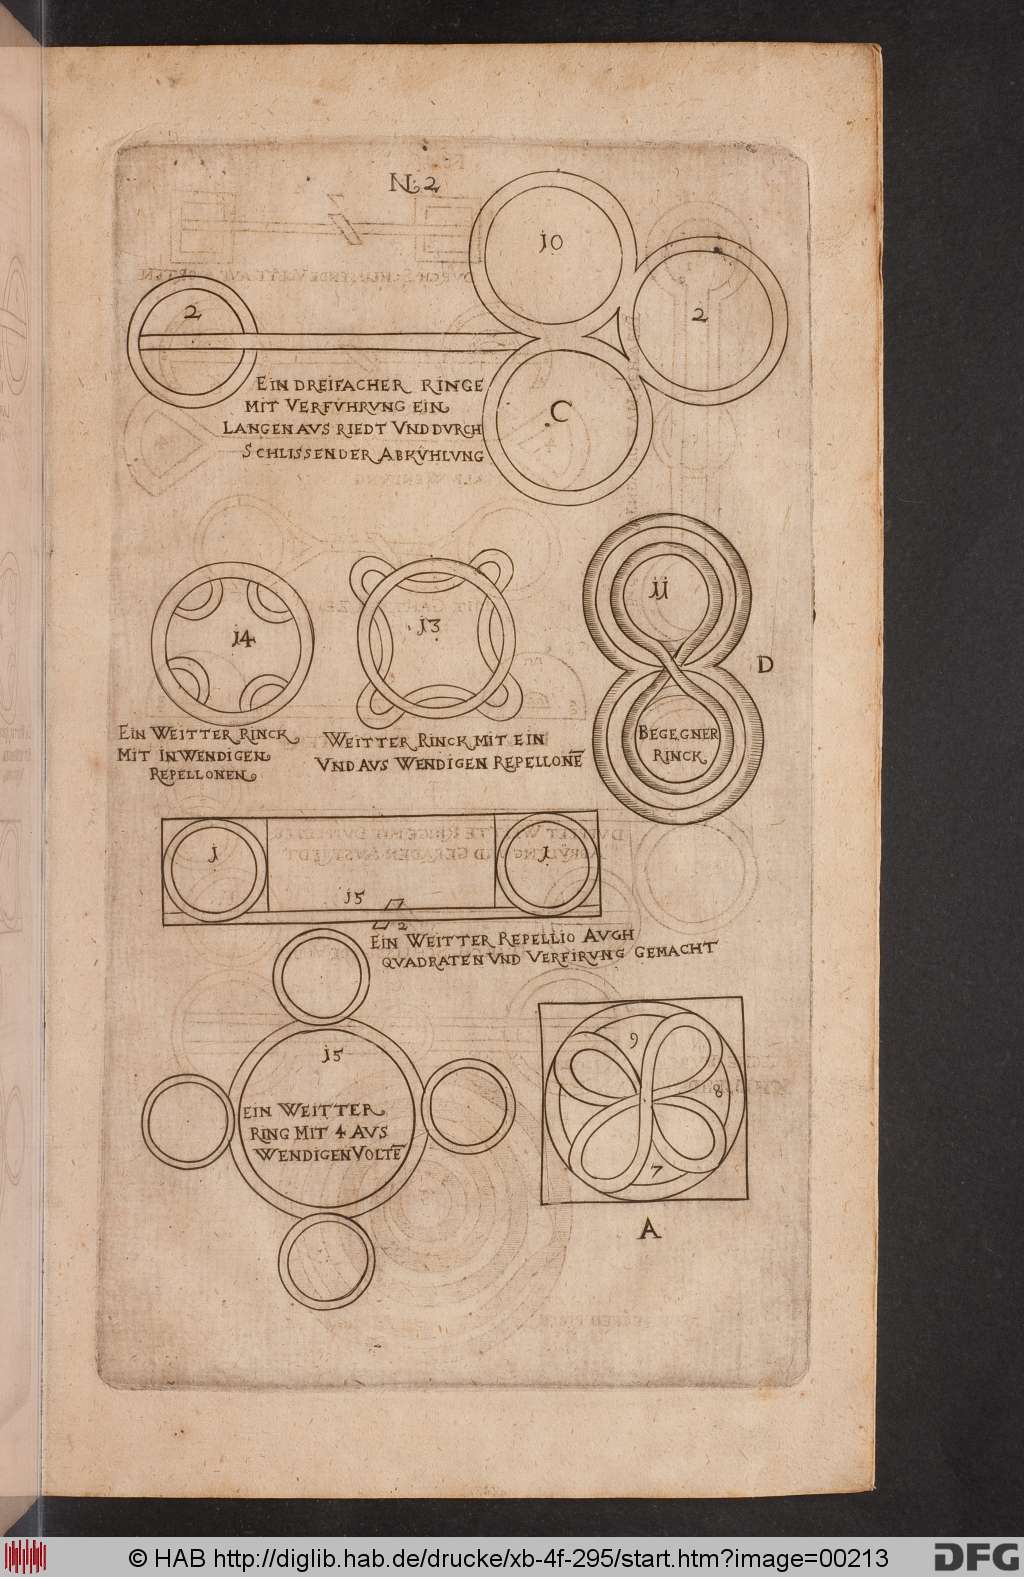 N. 2
j0
2
2
EIN DREIFACHER RINGE
MIT VERFVHRVNG EIN
LANGEN AVS RIEDT VND DVRCH
SCHLISSENDER ABKVHLVNG
C
j4
j3
jj
D
EIN WEITTER RINCK
MIT INWENDIGEN
REPELLONEN
WEITTER RINCK MIT EIN
VND AVS WENDIGEN REPELLONE̅
BEGEGNER
RINCK
j
j
j5
2
EIN WEITTER REPELLIO AVGH
QVADRATEN VND VERFIRVNG GEMACHT
j5
EIN WEITTER
RING MIT 4 AVS
WENDIGEN VOLTE̅
9
8
7
A
© HAB http://diglib.hab.de/drucke/xb-4f-295/start.htm?image=00213
DFG